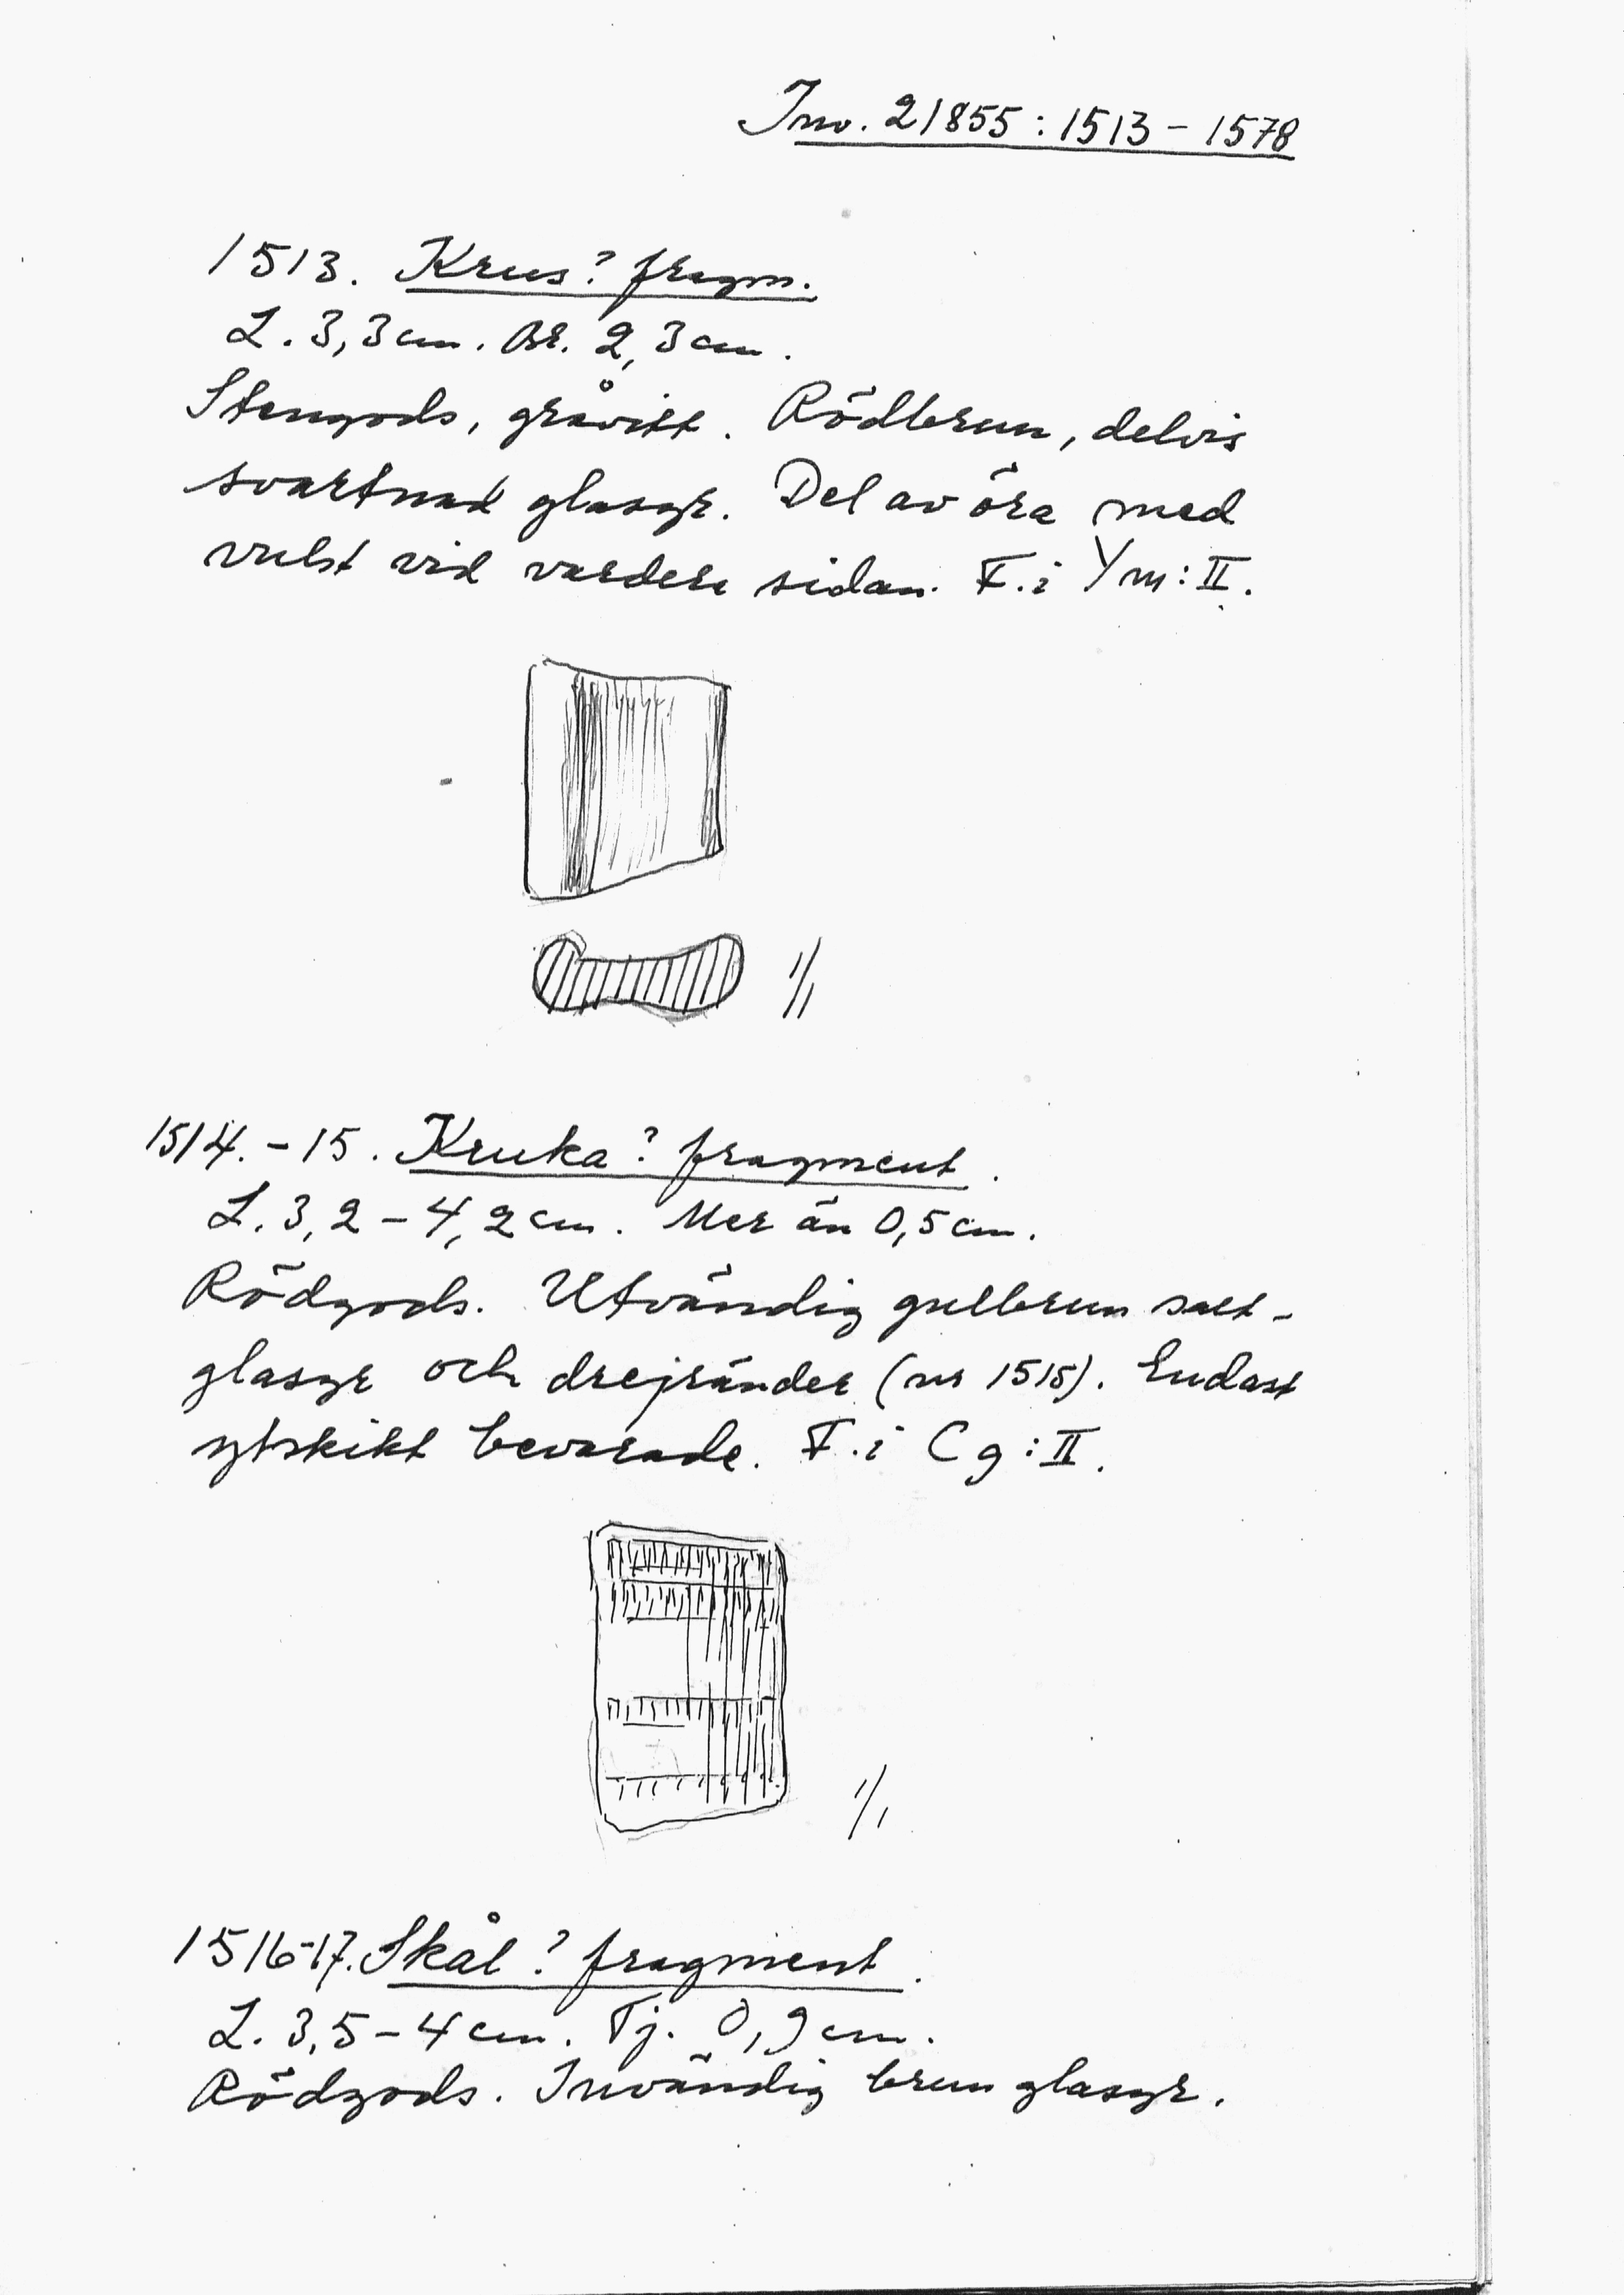 Inv. 21855:1513-1578
1513. Krus? fragm.
L. 3,3 cm. Br. 2,3 cm.
Stengods, gråvitt. Rödbrun, delvis
svartnad glasyr. Del av öra med
vulst vid vardera sidan. F. i Ym:II.
1/1
1514.-15. Kruka? fragment.
L. 3,2-4,2 cm. Mer än 0,5 cm.
Rödgods. Utvändig gulbrun salt-
glasyr och drejränder (nr 1515). Endast
ytskikt bevarade. F. i Cg:II.
1/1
1516-17. Skål? fragment.
L. 3,5-4 cm. Tj. 0,9 cm.
Rödgods. Invändig brun glasyr.